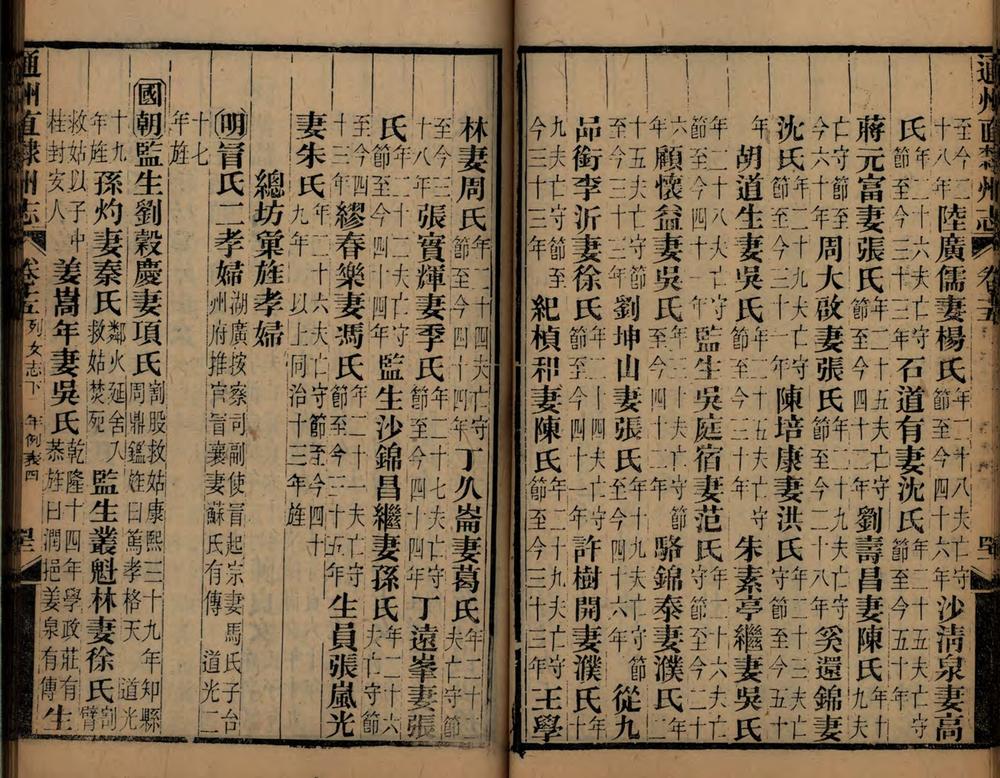 通州直隸州志 卷十五
至今二十八年 陸廣儒妻楊氏年二十八夫亡守節至今四十六年 沙淸泉妻高
氏年二十六夫亡守節至今三十三年 石道有妻沈氏年二十一夫亡守節至今五十年
蔣元富妻張氏年二十五夫亡守節至今四十二年 劉壽昌妻陳氏年十九夫
亡守節至今六十年 周大啟妻張氏年二十九夫亡守節至今二十八年 奚還錦妻
沈氏年二十九夫亡守節至今三十一年 陳培康妻洪氏年二十三夫亡守節至今五十
年 胡道生妻吳氏年二十五夫亡守節至今三十年 朱素亭繼妻吳氏
年二十八夫亡守節至今四十一年 監生吳庭宿妻范氏年二十六夫亡守節至今二十
六年 顧懷益妻吳氏年三十夫亡守節至今四十二年 駱錦泰妻濮氏年二
十五夫亡守節至今三十三年 劉坤山妻張氏年十九夫亡守節至今四十六年 從九
品銜李沂妻徐氏年二十一夫亡守節至今四十一年 許樹開妻濮氏年十
九夫亡守節至今三十三年 紀楨和妻陳氏年二十九夫亡守節至今三十三年 王學
林妻周氏年二十四夫亡守節至今四十四年 丁久崙妻葛氏年二十二夫亡守節
至今三十八年 張實輝妻季氏年二十七夫亡守節至今四十四年 丁遠峯妻張
氏年二十二夫亡守節至今四十四年 監生沙錦昌繼妻孫氏年二十六夫亡守節
至今四十三年 繆春樂妻馮氏年二十一夫亡守節至今三十五年 生員張嵐光
妻朱氏年二十六夫亡守節至今四十九年 以上同治十三年旌
總坊彙旌孝婦
明冒氏二孝婦湖廣按察司副使冒起宗妻馬氏子台州府推官冒襄妻蘇氏有傳 道光二
十七年旌
國朝監生劉穀慶妻項氏割股救姑康熙三十九年知縣周鼎鑑旌曰篤孝格天 道光
十九年旌 孫灼妻秦氏鄰火延舍入救姑焚死 監生叢魁林妻徐氏割臂
救姑以子中桂封安人 姜嵩年妻吳氏乾隆十四年學政莊有恭旌曰潤挹姜泉有傳 生
通州直隸州志 卷十五 列女志下 年例表四